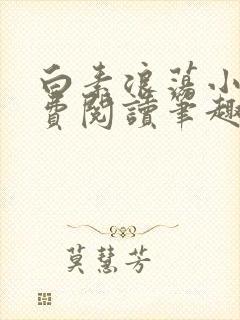 白素浪荡小
费阅读笔趣
莫慧芳